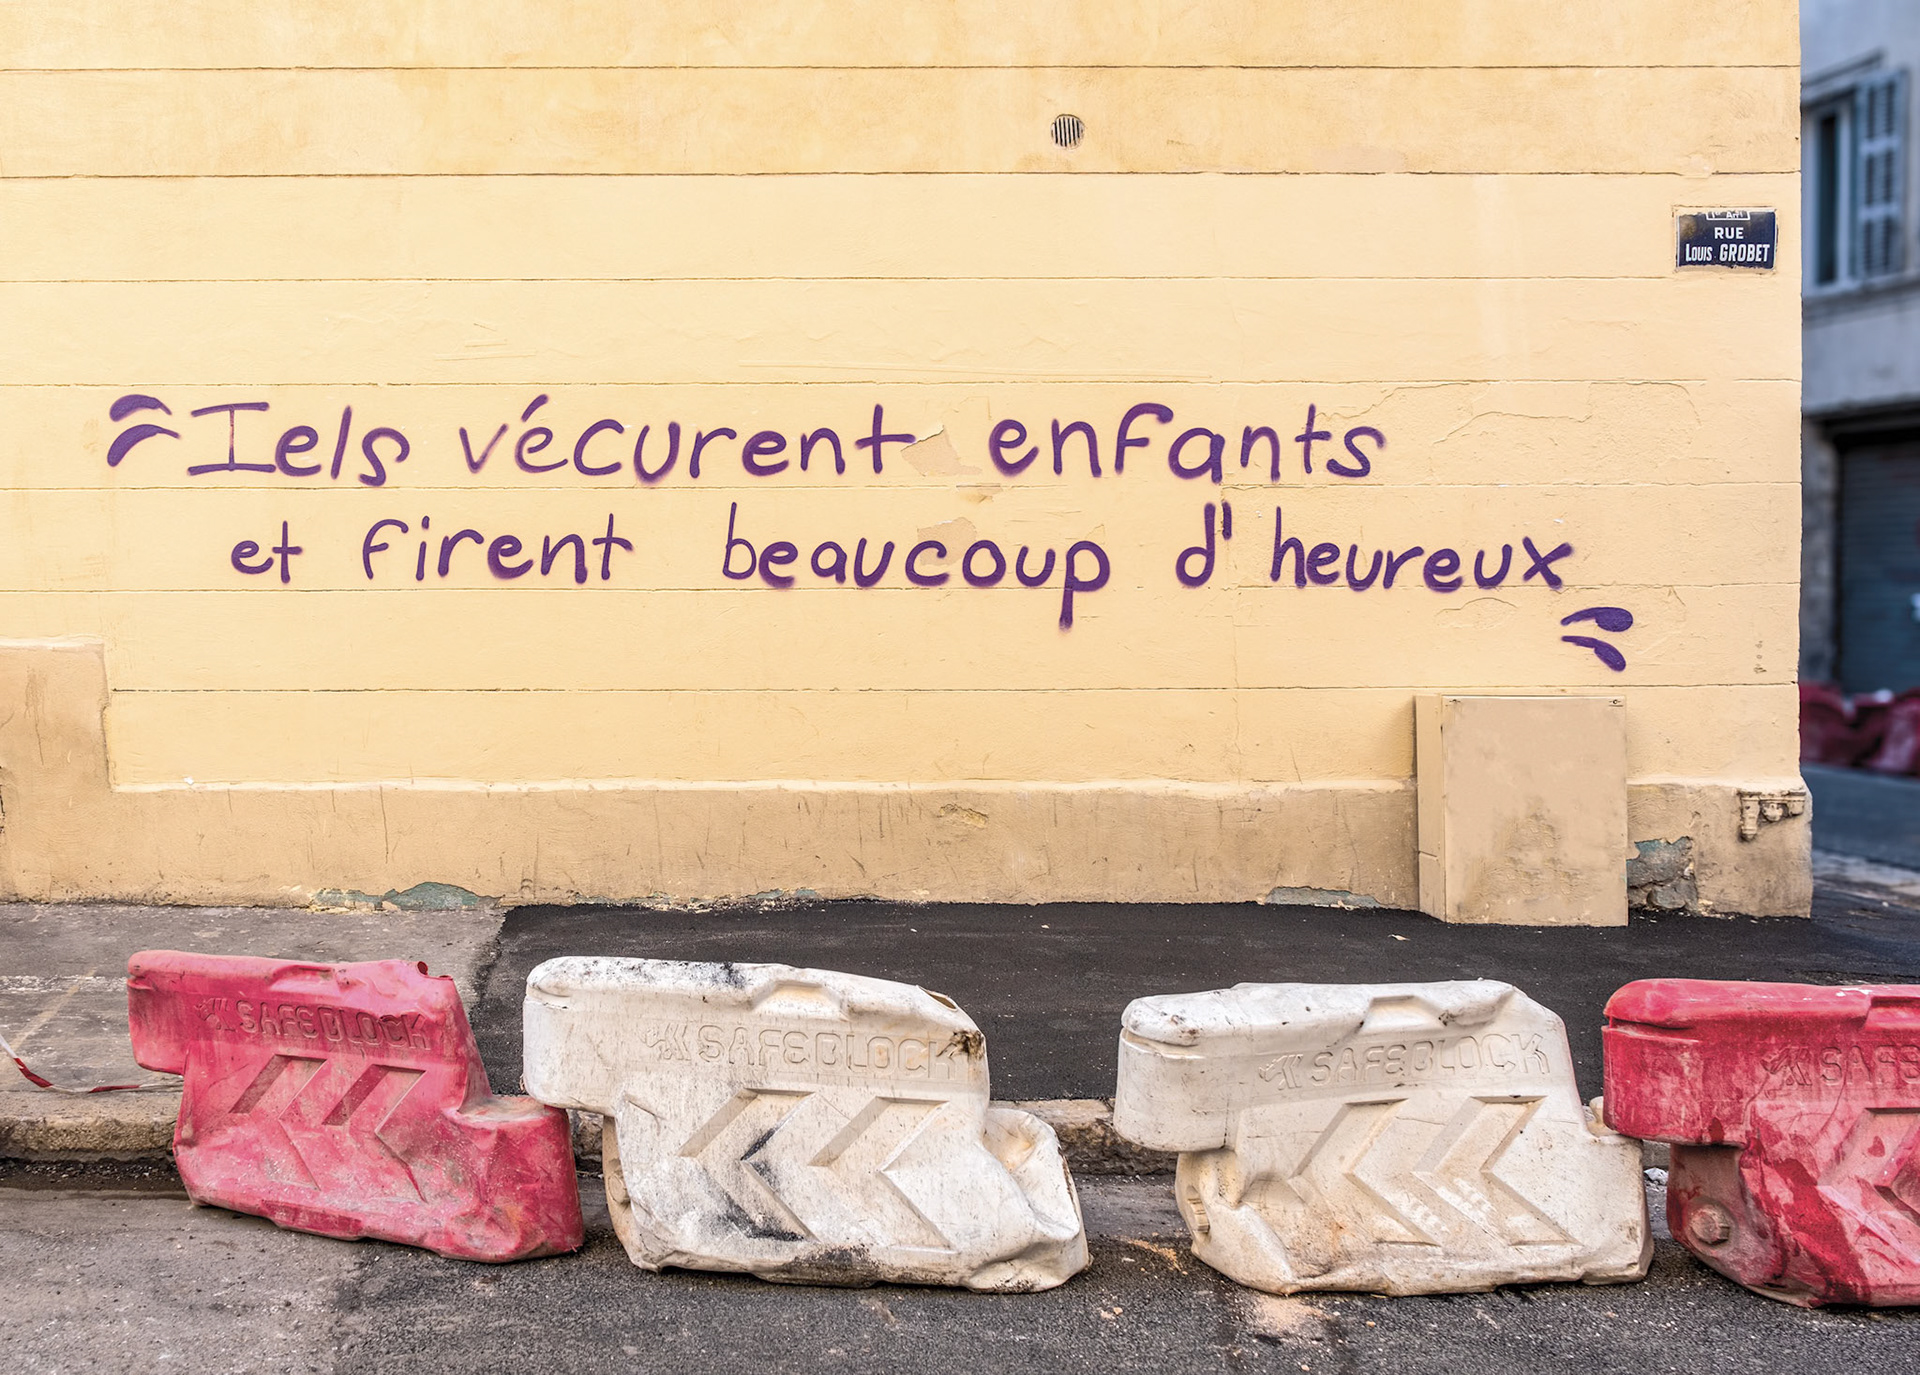 1er Arrt
RUE
LOUIS GROBET
" Iels vécurent enfants
et firent beaucoup d'heureux "
SAFEBLOCK
SAFEBLOCK
SAFEBLOCK
SAFE